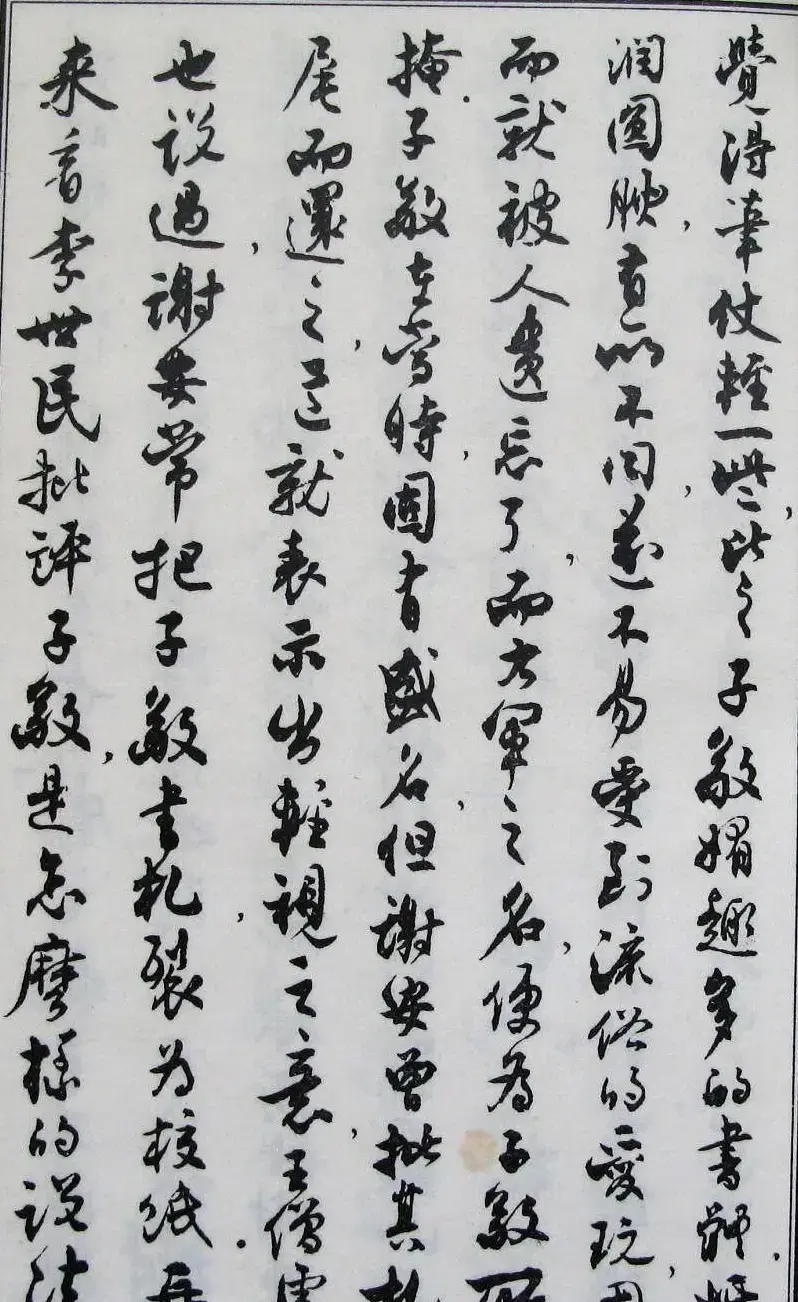 覺得筆仗輕一些，比之子敬媚趣多的書體，
潤圓腴，有所不同，遂不易受到流俗的愛玩，因
而就被人遺忘了，而右軍之名，便為子敬所
掩。子敬在當時，固有盛名，但謝安曾批其札
尾而還之，這就表示出輕視之意，王僧虔
也說過，謝安常把子敬書札，裂為校紙。再
来看李世民批評子敬，是怎麼樣的說法